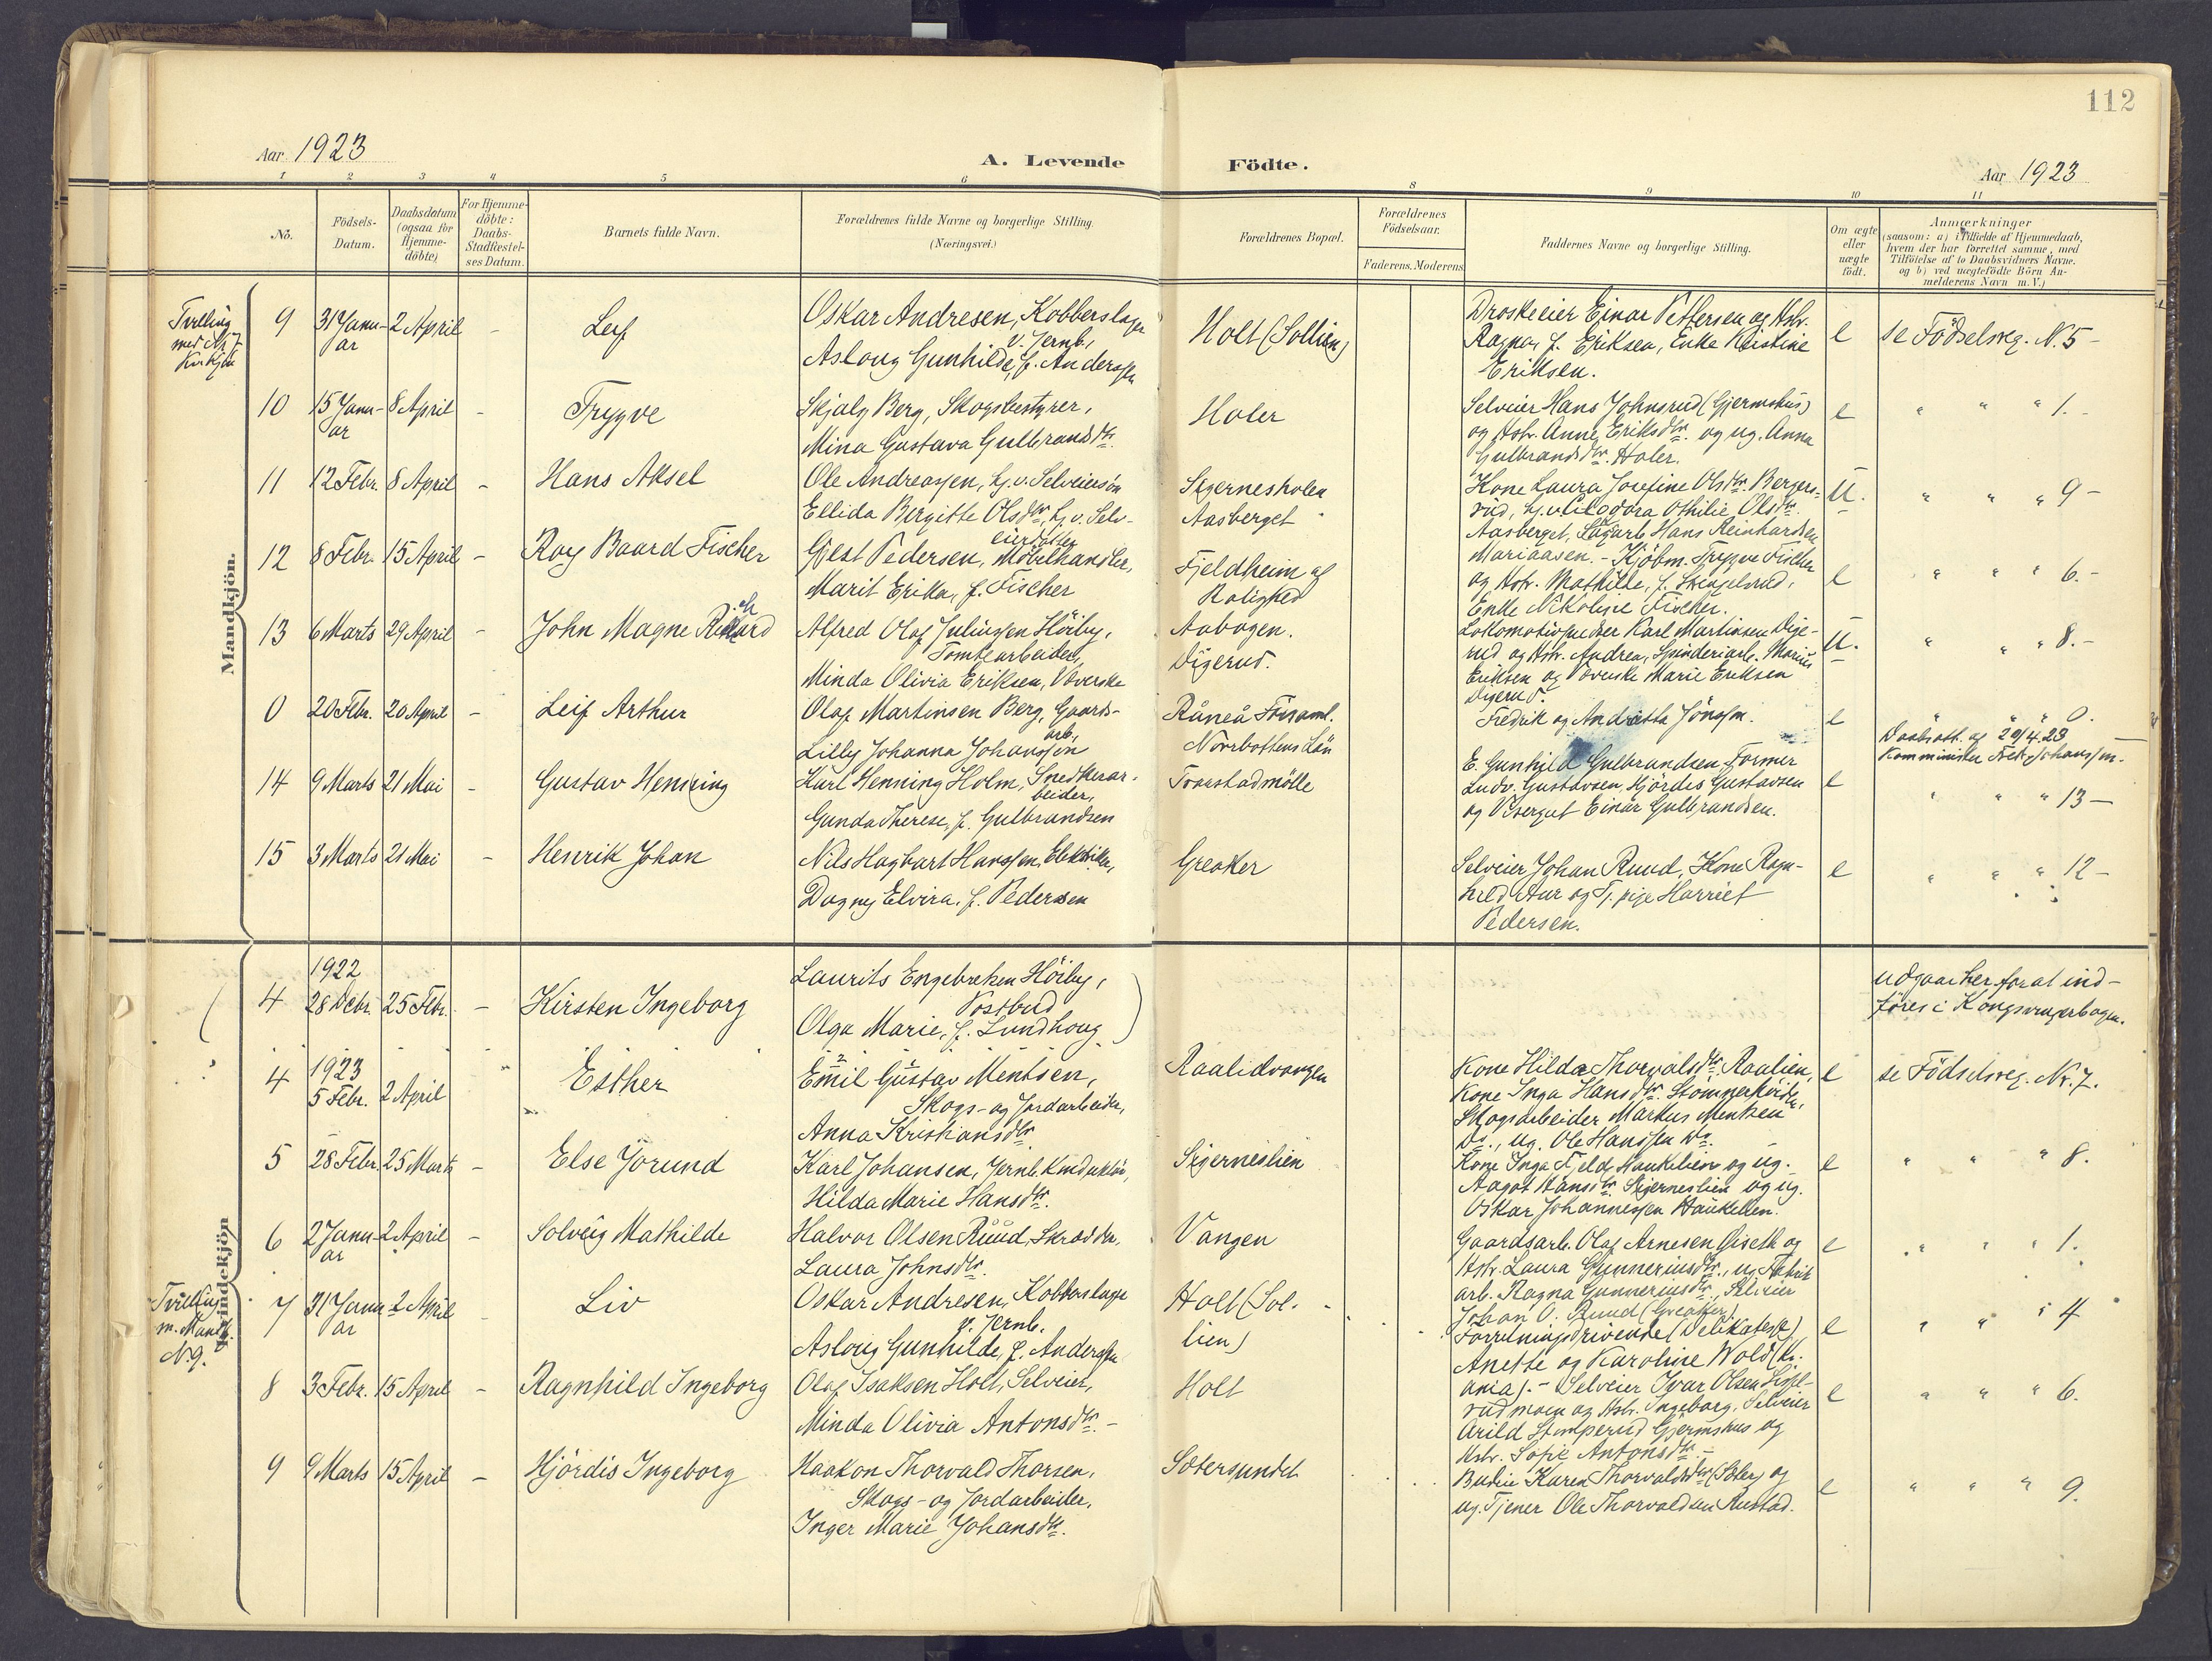 112
Aar 1923
A. Levende
Födte.
Aar 1923
1 2 3 4 5 6 8 9 10 11
No.
Födsels-Datum.
Daabsdatum (ogsaa for Hjemme-döbte)
For Hjemme-döbte: Daabs-Stadfæstel-ses Datum.
Barnets fulde Navn.
Forældrenes fulde Navne og borgerlige Stilling.
(Næringsvei.)
Forældrenes Bopæl.
Forældrenes Födselsaar.
Faderens. Moderens.
Faddernes Navne og borgerlige Stilling.
Om ægte eller uægte födt.
Anmærkninger
(saasom: a) i Tilfælde af Hjemmedaab,
hvem der har forrettet samme, med
Tilföielse af to Daabsvidners Navne.
og b) ved uægtefödte Börn An-
melderens Navn m.V.)
Mandkjön.
Tvilling
med N. 7
Kvkjön
9 31 Janu-ar 2 April - Leif
Oskar Andresen, Kobberslager
v. Jernb.,
Aslaug Gunhilde, f. Anderssen
Holt (Sollien)
Droskeeier Einar Pettersen og Hstr.
Ragna, f. Eriksen, Enke Kristine
Eriksen.
e se Födselsreg. N. 5 -
10 15 Janu-ar 8 April - Trygve
Skjalg Berg, Skogsbestyrer,
Mina Gustava Gulbrandsdtr.
Holer
Selveier Hans Johnsrud (Gjermshus)
og Hstr. Anne Eriksdtr. og ug. Anna
Gulbrandsdtr. Holer.
e " " " 1. -
11 12 Febr. 8 April - Hans Aksel
Ole Andreassen, hj.v. Selveiersön
Ellida Bergitte Olsdtr, hj.v. Selv-
eierdatter
Skjernesholen
Aasberget
Kone Laura Josefine Olsdtr. Bergers-
rud, Othilie Olsdtr.
Aasberget, Sagarb. Hans Reinhardsen
Mariaasen. -
U. " " " 9 -
12 8 Febr. 15 April - Roy Baard Fischer
Gjest Pedersen, Möbelhandler,
Marit Erika, f. Fischer
Fjeldheim af
Rolighed
Kjöbm. Trygve Fischer
og Hstr. Mathilde, f.
Enke Nikoline Fischer.
e " " " 6. -
13 6 Marts 29 April - John Magne Rikard
Alfred Olaf Juliussen Höiby,
Tomtearbeider,
Minda Olivia Eriksen, Væverske
Aabogen.
Digerud.
Lokomotivpudser Karl Martinsen Dige-
rud og Hstr. Andrea, Spinderiarb. Marius
Eriksen og Væverske Marie Eriksen
Digerud.
U. " " " 8. -
0 20 Febr. 20 April - Leif Arthur
Olaf Martinsen Berg, Gaards-
arb.,
Lilly Johanna Johanssen
Råneå Församl.
Norrbottens Län
Fredrik og Andrietta Jönssn.
e " " " 0.
Daabsatt. af 20/4.23
Komminister Johanssn.
14 9 Marts 21 Mai - Gustav Henning
Karl Henning Holm, Snedkerar-
beider,
Gunda Therese, f. Gulbrandsen
Transtadmölle
E. Gunhild Gulbrandsen, Former
Ludv. Gustavsen, Hjördis Gustavsen
og Visergut Einar Gulbrandsen.
e " " " 13 -
15 3 Marts 21 Mai - Henrik Johan
Nils Hagbart Hanssen, Elektriker,
Dagny Elvira, f. Pedersen
Greaker
Selveier Johan Ruud, Kone Ragn-
hild Aur og Tj. pige Harriet
Pedersen.
e " " " 12 -
Kvindekjön
4 1922 28 Decbr. 25 Febr. - Kirsten Ingeborg
Laurits Engebretsen Höiby,
Postbud
Olga Marie, f. Lundhoug
udgaar her for at ind-
föres i Kongsvingerbogen.
4 1923 5 Febr. 2 April Esther
Emil Gustav Mentsen,
Skogs- og Jordarbeider,
Anna Kristiansdtr
Raalidvangen
Kone Hilda Thorvalsdtr. Raalien,
Kone Inga Hansdtr.
Skogsarbeider Markus Mentsen
Ds., ug. Ole Hanssen Ds.
e se Födselsreg. Nr. 7.
5 28 Febr. 25 Marts - Else Jorund
Karl Johansen, Jernb. Konduktör,
Hilda Marie Hansdtr.
Skjerneslien
Kone Inga Fjeld, Haukelien og ug.
Aagot Hansdtr. Skjerneslien og ug.
Oskar Johannessen Haukelien.
e " " " 8.
6 2 Janu-ar 2 April - Solveig Mathilde
Halvor Olsen Ruud, Skrædder,
Laura Johnsdtr.
Vangen
Gaardsarb. Olaf Arnesen Giseth og
Hstr. Laura Gunneriusdtr., ug. Fabrik
arb. Ragna Gunneriusdtr., Selveier
Johan O. Ruud (Greaker)
e " " " 1.
Tvilling
m. Mandk.
N. 9.
7 31 Janu-ar 2 April - Liv
Oskar Andresen, Kobberslager
v. Jernb.
Aslaug Gunhilde, f. Anderssen
Holt (Sol-
lien)
Forretningsdrivende (Delikatesse)
Anette og Karoline Wold (Kr.-
ania). -
e " " " 4
8 3 Febr. 15 April - Ragnhild Ingeborg
Olaf Isaksen Holt, Selveier,
Minda Olivia Antonsdtr. -
Holt
Selveier Ivar Olsen
rudmoen og Hstr. Ingeborg, Selveier
Arild Stomperud Gjermshus og
Hstr. Sofie Antonsdtr -
e " " " 6.
9 9 Marts 15 April - Hjördis Ingeborg
Haakon Thorvald Thorsen,
Skogs- og Jordarbeider,
Inger Marie Johansdtr.
Sætersundet
Budeie Karen Thorvaldsdtr (Sæter) og
ug. Tjener Ole Thorvaldsen Rustad.
e " " " 9.